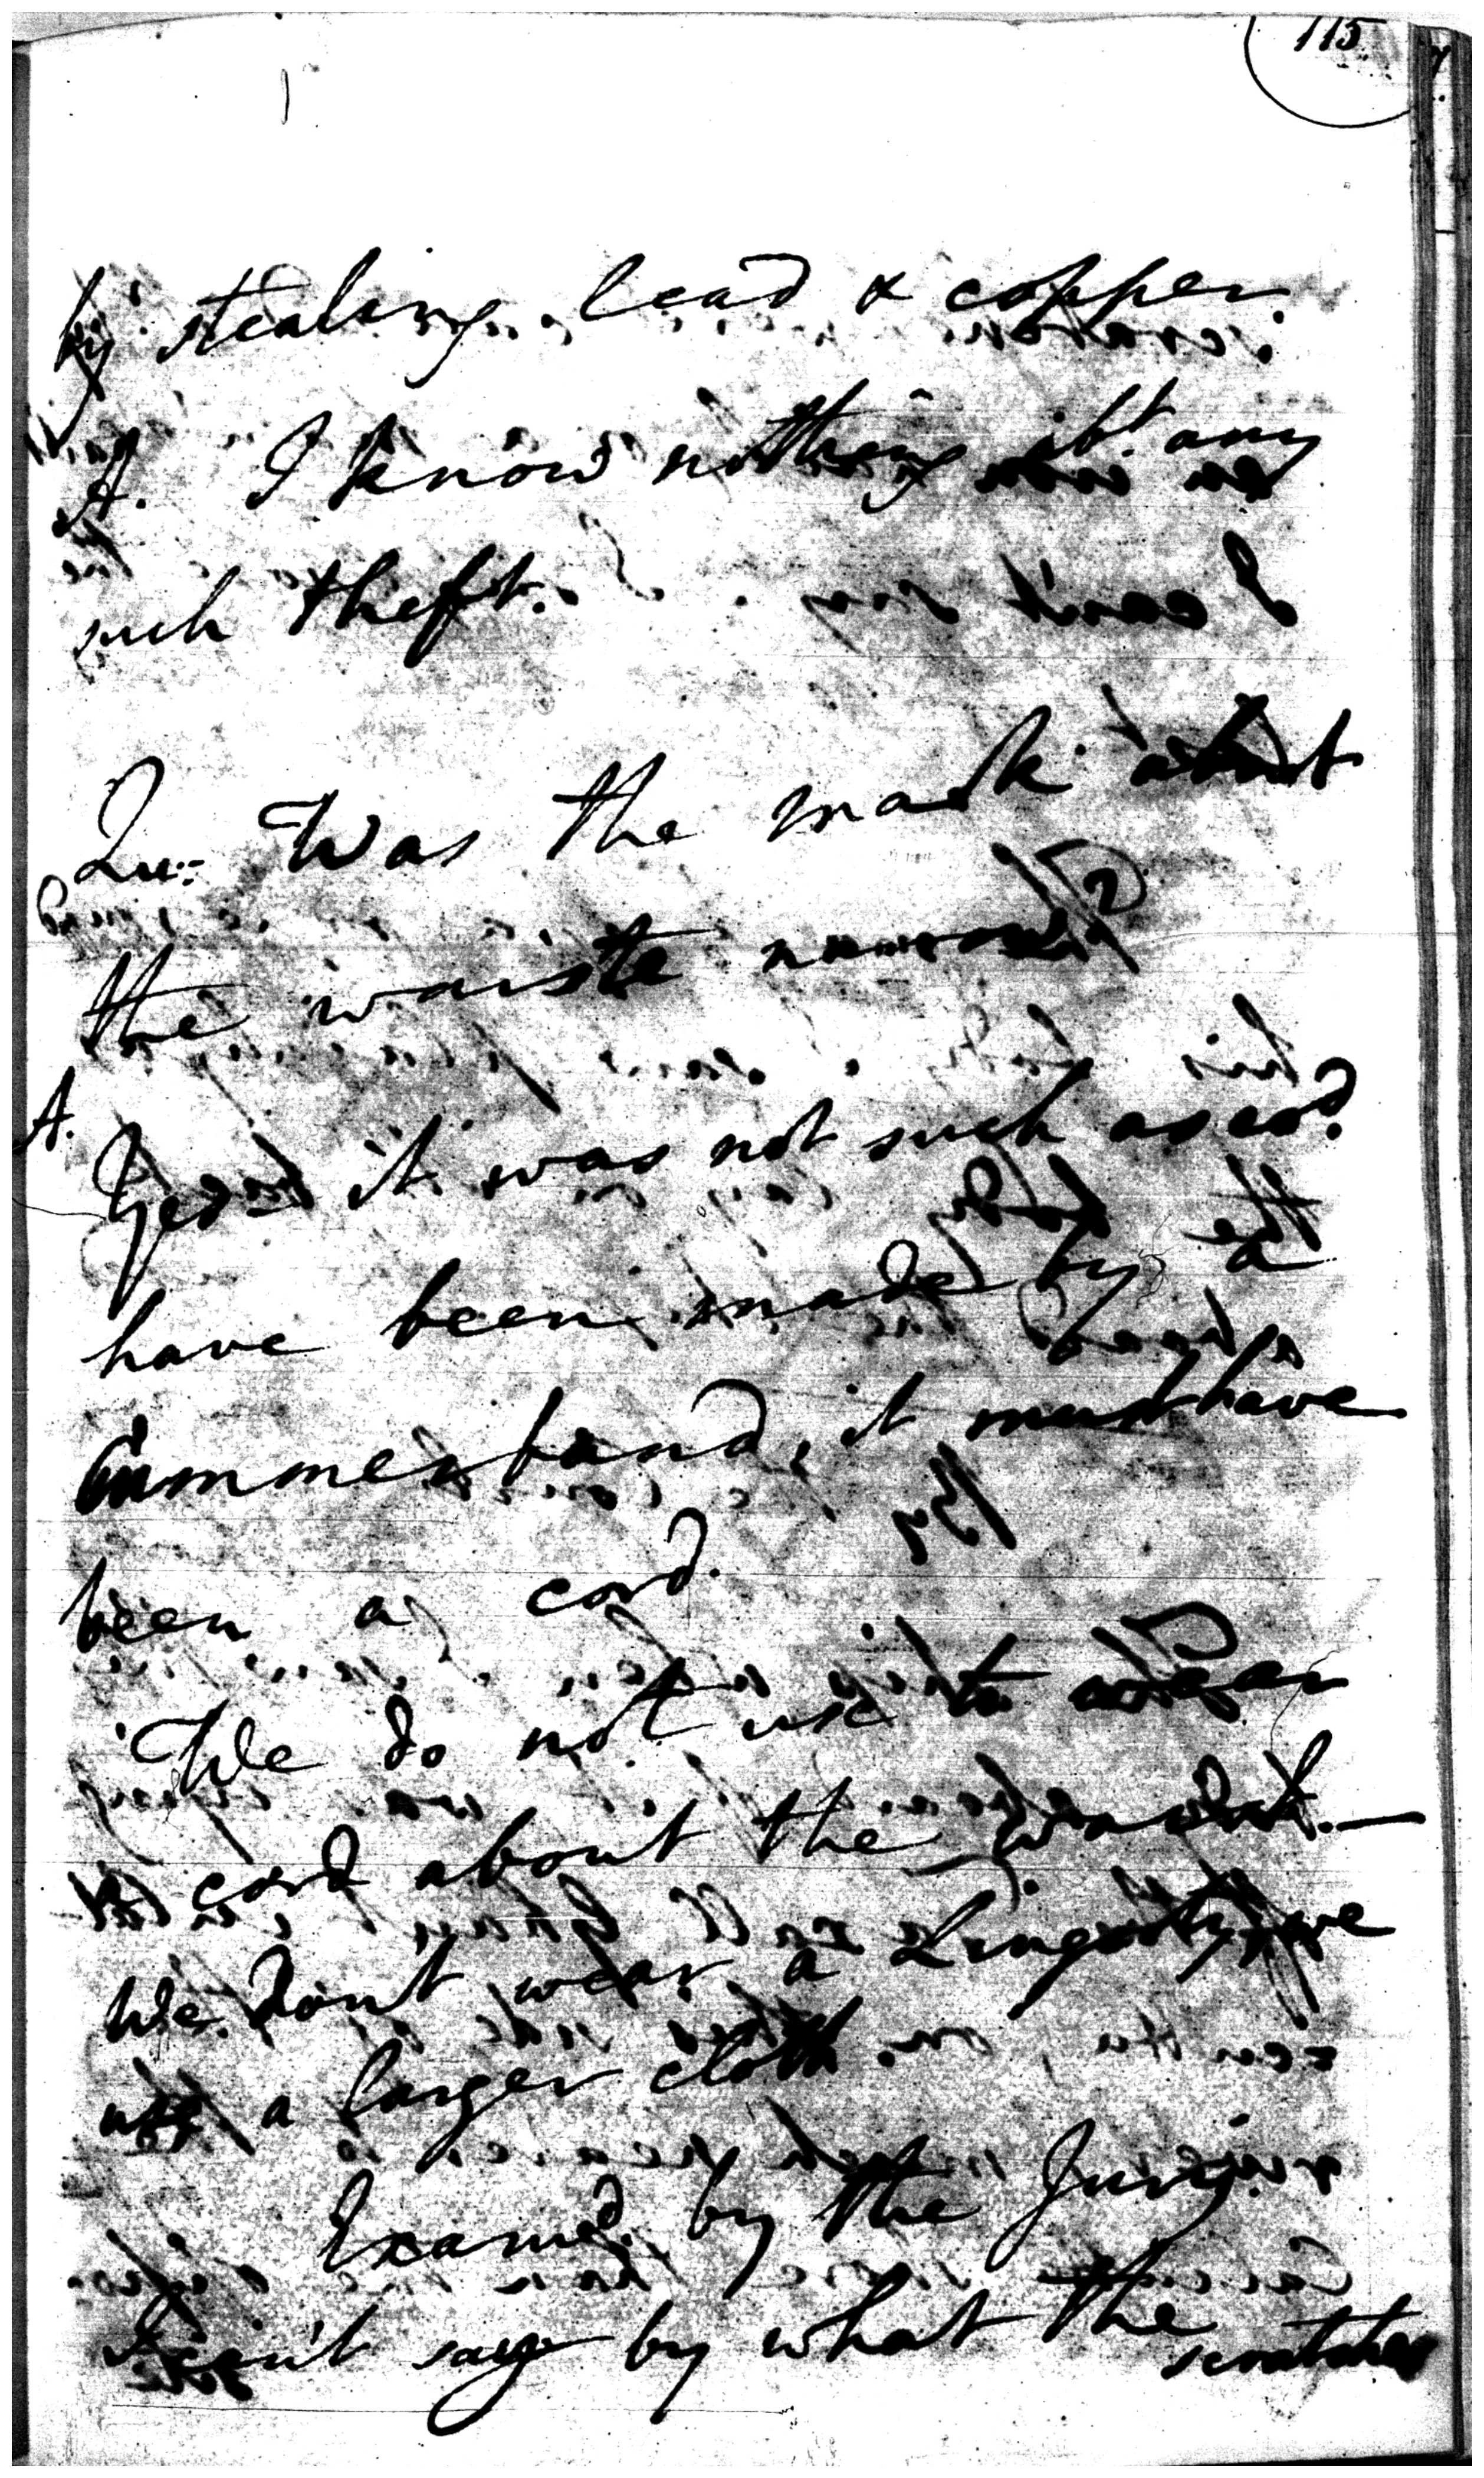 115
by stealing lead & copper.
A. I know nothing abt. any
such theft.
Qu: Was the mark about
the waiste narrow?
A. Yes it was not such as cod.
have been made by a
Cummerband, it must have
been a cord.
We do not use to wear
a cord about the waist. —
We don't wear a Lingoty, we
use a larger cloth.
Examd. by the Jury.
I can't say by what the scratches